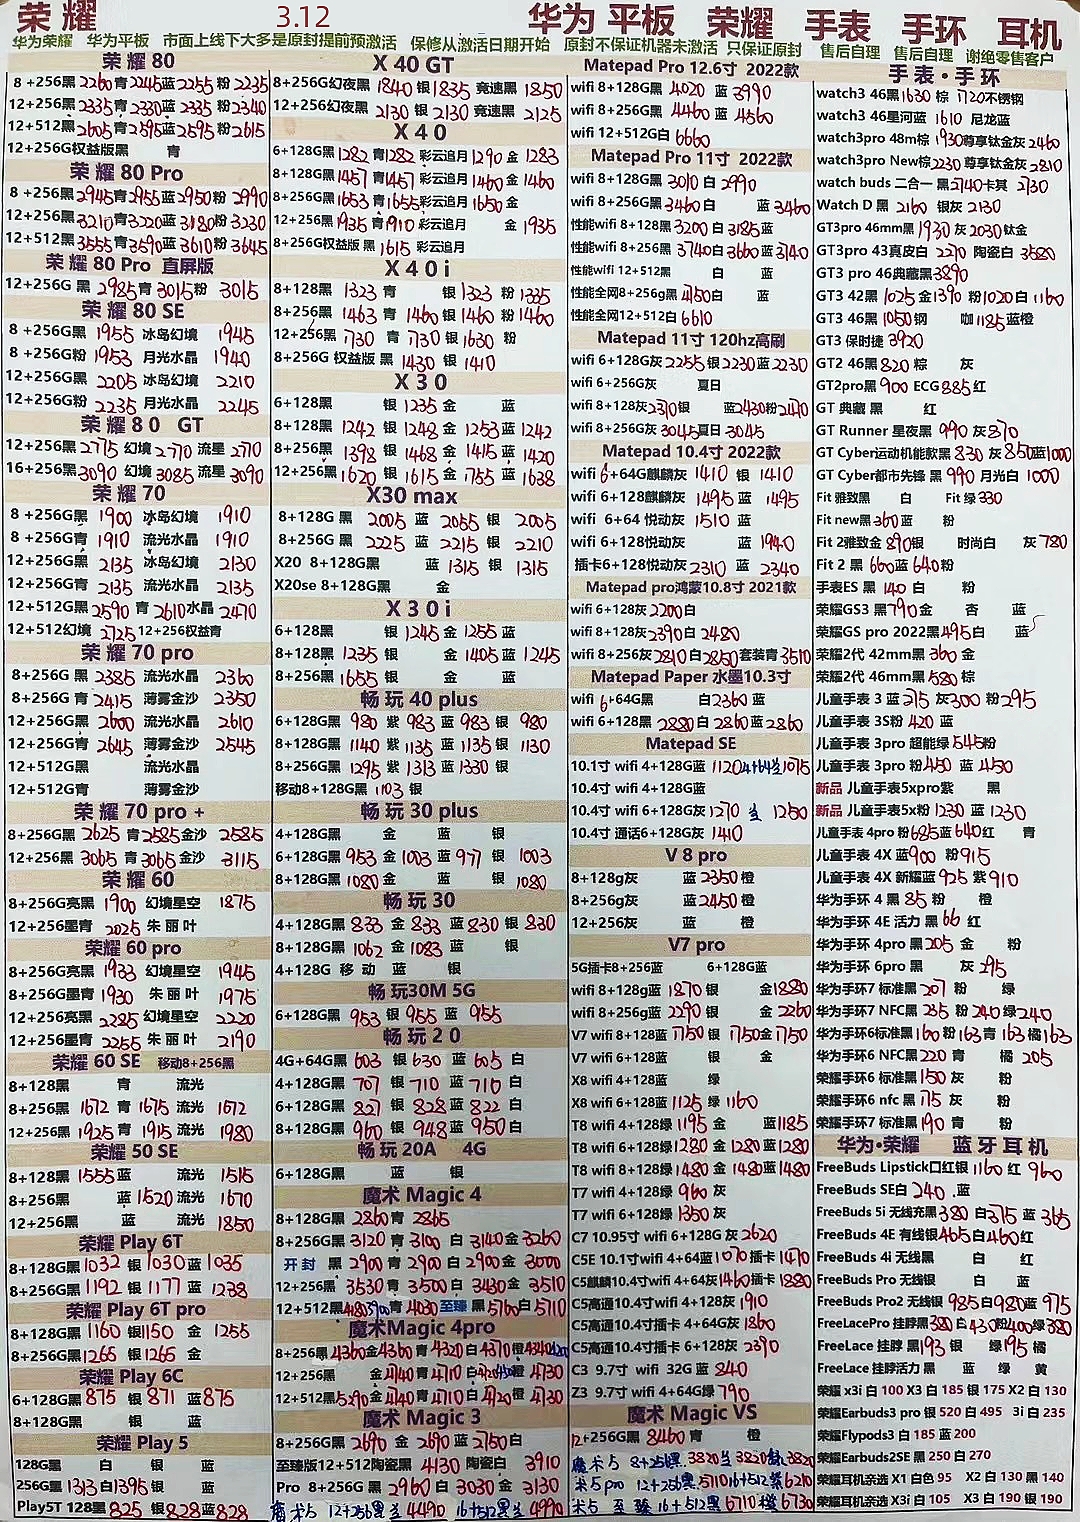 荣耀 3.12 华为 平板 荣耀 手表 手环 耳机
华为荣耀 华为平板 市面上线下大多是原封提前预激活 保修从激活日期开始 原封不保证机器未激活 只保证原封 售后自理 售后自理 谢绝零售客户
荣耀80
8+256黑 2260 青 2245 蓝 2255 粉 2235
12+256黑 2335 青 2330 蓝 2335 粉 2340
12+512黑 2605 青 2595 蓝 2595 粉 2615
12+256G权益版黑 青
荣耀80 Pro
8+256黑 2945 青 2955 蓝 2950 粉 2990
12+256黑 3210 青 3220 蓝 3180 粉 3230
12+512黑 3555 青 3590 蓝 3610 粉 3645
荣耀80 Pro 直屏版
12+256G 黑 2985 青 3015 粉 3015
荣耀80 SE
8+256G黑 1955 冰岛幻境 1945
8+256G粉 1953 月光水晶 1940
12+256G黑 2205 冰岛幻境 2210
12+256G粉 2235 月光水晶 2245
荣耀80 GT
12+256黑 2775 幻境 2770 流星 2770
16+256黑 3090 幻境 3085 流星 3090
荣耀70
8+256G黑 1900 冰岛幻境 1910
8+256G青 1910 流光水晶 1910
12+256G黑 2135 冰岛幻境 2130
12+256G青 2135 流光水晶 2135
12+512G黑 2590 青 2610 水晶 2470
12+512幻境 2725 12+256权益青
荣耀70 pro
8+256G黑 2385 流光水晶 2360
8+256G青 2415 薄雾金沙 2350
12+256G黑 2600 流光水晶 2610
12+256G青 2645 薄雾金沙 2545
12+512G黑 流光水晶
12+512G青 薄雾金沙
荣耀70 pro +
8+256G黑 2625 青 2585 金沙 2585
12+256黑 3065 青 3065 金沙 3115
荣耀60
8+256G亮黑 1900 幻境星空 1875
12+256墨青 2025 朱丽叶
荣耀60 pro
8+256G亮黑 1933 幻境星空 1945
8+256G墨青 1930 朱丽叶 1975
12+256亮黑 2285 幻境星空 2220
12+256墨青 2255 朱丽叶 2190
荣耀60 SE 移动8+256黑
8+128黑 青 流光
8+256黑 1672 青 1675 流光 1672
12+256黑 1925 青 1915 流光 1980
荣耀50 SE
8+128黑 1555 蓝 流光 1515
8+256黑 蓝 1520 流光 1670
12+256黑 蓝 流光 1850
荣耀Play 6T
8+128G黑 1032 银 1030 蓝 1035
8+256G黑 1192 银 1177 蓝 1238
荣耀Play 6T pro
8+128G黑 1160 银 1150 金 1255
8+256G黑 1265 银 1265 金
荣耀Play 6C
6+128G黑 875 银 871 蓝 875
8+128G黑 银 蓝
荣耀Play 5
128G黑 白 银 蓝
256G黑 1313 白 1395 银
Play5T 128黑 825 银 828 蓝 828
X40 GT
8+256G幻夜黑 1840 银 1835 竞速黑 1850
12+256幻夜黑 2130 银 2130 竞速黑 2125
X40
6+128G黑 1282 青 1282 彩云追月 1290 金 1283
8+128G黑 1457 青 1457 彩云追月 1460 金 1460
8+256G黑 1653 青 1655 彩云追月 1650 金
12+256黑 1935 青 1910 彩云追月 金 1935
8+256G权益版 黑 1615 彩云追月
X40i
8+128黑 1323 青 银 1323 粉 1335
8+256黑 1463 青 1460 银 1460 粉 1460
12+256黑 1730 青 1730 银 1630 粉
8+256G 权益版 黑 1430 银 1410
X30
6+128黑 银 1235 金 蓝
8+128黑 1242 银 1248 金 1253 蓝 1242
8+256黑 1398 银 1468 金 1415 蓝 1420
12+256黑 1620 银 1615 金 1755 蓝 1638
X30 max
8+128G 黑 2005 蓝 2055 银 2005
8+256G 黑 2225 蓝 2215 银 2210
X20 8+128G黑 蓝 1315 银 1315
X20se 8+128G黑 金
X30i
6+128黑 银 1245 金 1255 蓝
8+128黑 1235 银 金 1405 蓝 1245
8+256黑 1655 银 金 蓝
畅玩40 plus
6+128G黑 980 紫 983 蓝 983 银 980
8+128G黑 1140 紫 1135 蓝 1135 银 1130
8+256G黑 1295 紫 1313 蓝 1330 银
移动8+128G黑 1103 银
畅玩30 plus
4+128G黑 金 蓝 银
6+128G黑 953 金 1003 蓝 977 银 1003
8+128G黑 1080 金 蓝 银 1080
畅玩30
4+128G黑 833 金 833 蓝 830 银 830
8+128G黑 1062 金 1083 蓝 银
4+128G 移动 蓝 银
畅玩30M 5G
6+128G黑 953 银 955 蓝 955
畅玩20
4G+64G黑 603 银 630 蓝 605 白
4+128G黑 707 银 710 蓝 710 白
6+128G黑 827 银 828 蓝 822 白
8+128G黑 960 银 948 蓝 950 白
畅玩20A 4G
6+128G黑 蓝 银
魔术 Magic 4
8+128G黑 2860 青 2865
8+256G黑 3120 青 3100 白 3140 金 3260
开封 黑 2900 青 2900 白 2900 金 3000
12+256黑 3530 青 3500 白 3430 金 3510
12+512黑 青 4030 至臻 黑 5160 白 5110
魔术Magic 4pro
8+256黑 4360 金 4360 青 4320 白 4370 橙
12+256黑 金 4740 青 4710 白 橙 4730
12+512黑 5290 金 4740 青 4710 白 4720 橙 4730
魔术 Magic 3
8+256G黑 2690 金 2690 蓝 2750 白
至臻版12+512陶瓷黑 4130 陶瓷白 3910
Pro 8+256G 黑 2960 白 3030 金 3130
魔术5 12+256黑兰 4490 16+512黑兰 4990
Matepad Pro 12.6寸 2022款
wifi 8+128G黑 4020 蓝 3990
wifi 8+256G黑 4460 蓝 4560
wifi 12+512G白 6660
Matepad Pro 11寸 2022款
wifi 8+128G黑 3010 白 2990
wifi 8+256G黑 3460 白 蓝 3460
性能wifi 8+128黑 3200 白 3185 蓝
性能wifi 8+256黑 3740 白 3660 蓝 3740
性能wifi 12+512黑 白 蓝
性能全网8+256g黑 4150 白 蓝
性能全网12+512白 6610
Matepad 11寸 120hz高刷
wifi 6+128G灰 2255 银 2230 蓝 2230
wifi 6+256G灰 夏日
wifi 8+128灰 2370 银 蓝 2430 粉 2470
wifi 8+256G灰 3045 夏日 3045
Matepad 10.4寸 2022款
wifi 6+64G麒麟灰 1410 银 1410
wifi 6+128麒麟灰 1495 蓝 1495
wifi 6+64 悦动灰 1510 蓝
wifi 6+128悦动灰 蓝 1940
插卡6+128悦动灰 2310 蓝 2340
Matepad pro鸿蒙10.8寸 2021款
wifi 6+128灰 2200 白
wifi 8+128灰 2390 白 2480
wifi 8+256灰 2810 白 2850 套装青 3510
Matepad Paper 水墨10.3寸
wifi 6+64G黑 白 2360 蓝
wifi 6+128黑 2880 白 2860 蓝 2860
Matepad SE
10.1寸 wifi 4+128G蓝 1120 4+64兰 1075
10.4寸 wifi 4+128G蓝
10.4寸 wifi 6+128G灰 1270 兰 1250
10.4寸 通话6+128G灰 1410
V 8 pro
8+128g灰 蓝 2350 橙
8+256g灰 蓝 2450 橙
12+256灰 蓝 橙
V7 pro
5G插卡8+256蓝 6+128G蓝
wifi 8+128g蓝 1870 银 金 1880
wifi 8+256g蓝 2290 银 金 2260
V7 wifi 8+128蓝 1750 银 1750 金 1750
V7 wifi 6+128蓝 银 金
X8 wifi 4+128蓝 绿
X8 wifi 6+128蓝 1125 绿 1160
T8 wifi 4+128绿 1195 金 蓝 1185
T8 wifi 6+128绿 1280 金 1280 蓝 1280
T8 wifi 8+128绿 1480 金 1480 蓝 1480
T7 wifi 4+128绿 960 灰
T7 wifi 6+128绿 1350 灰
C7 10.95寸 wifi 6+128G 灰 2620
C5E 10.1寸wifi 4+64蓝 1070 插卡 1470
C5麒麟10.4寸wifi 4+64灰 1460 插卡 1880
C5高通10.4寸wifi 4+128灰 1910
C5高通10.4寸插卡 4+64G灰 1860
C5高通10.4寸插卡 6+128灰 2390
C3 9.7寸 wifi 32G 蓝 840
Z3 9.7寸 wifi 4+64G绿 790
魔术 Magic VS
12+256G黑 8460 青 橙
魔术5 8+256黑 3820 兰 3820 3820
术5pro 12+256黑 5110 16+512紫 6210
术5 至臻 16+512黑 6710 橙 6730
手表·手环
watch3 46黑 1630 棕 1720 不锈钢
watch3 46星河蓝 1610 尼龙蓝
watch3pro 48m棕 1930 尊享钛金灰 2460
watch3pro New棕 2230 尊享钛金灰 2810
watch buds 二合一 黑 2740 卡其 2730
Watch D 黑 2160 银灰 2130
GT3pro 46mm黑 1930 灰 2030 钛金
GT3pro 43真皮白 2270 陶瓷白 3580
GT3 pro 46典藏黑 3890
GT3 42黑 1025 金 1390 粉 1020 白 1160
GT3 46黑 1050 钢 咖 1185 蓝橙
GT3 保时捷 3920
GT2 46黑 820 棕 灰
GT2pro黑 900 ECG 885 红
GT 典藏 黑 红
GT Runner 星夜黑 990 灰 870
GT Cyber运动机能款黑 830 灰 850 蓝 1000
GT Cyber都市先锋 黑 990 月光白 1000
Fit 雅致黑 白 Fit 绿 330
Fit new黑 360 蓝 粉
Fit 2雅致金 890 银 时尚白 灰 780
Fit 2 黑 660 蓝 640 粉
手表ES 黑 140 白 粉
荣耀GS3 黑 790 金 杏 蓝
荣耀GS pro 2022黑 495 白 蓝
荣耀2代 42mm黑 360 金
荣耀2代 46mm黑 580 棕
儿童手表 3 蓝 275 灰 300 粉 295
儿童手表 3S粉 420 蓝
儿童手表 3pro 超能绿 545 粉
儿童手表 3pro 粉 450 蓝 450
新品 儿童手表5xpro紫 黑
新品 儿童手表5x粉 1230 蓝 1230
儿童手表 4pro 粉 685 蓝 640 红 青
儿童手表 4X 蓝 900 粉 915
儿童手表 4X 新辉蓝 925 紫 910
华为手环 4 黑 85 粉 橙
华为手环 4E 活力 黑 66 红
华为手环 4pro 黑 205 金 粉
华为手环 6pro 黑 灰 295
华为手环7 标准黑 207 粉 绿
华为手环7 NFC黑 235 粉 240 绿 240
华为手环6标准黑 160 粉 163 青 163 橘 163
华为手环6 NFC黑 220 青 橘 205
荣耀手环6 标准黑 150 灰 粉
荣耀手环6 nfc 黑 175 灰 粉
荣耀手环7 标准黑 190 青 粉
华为·荣耀 蓝牙耳机
FreeBuds Lipstick口红银 1160 红 960
FreeBuds SE白 240 蓝
FreeBuds 5i 无线充黑 380 白 375 蓝 365
FreeBuds 4E 有线银 465 白 460 红
FreeBuds 4i 无线黑 白 红
FreeBuds Pro 无线银 白 蓝
FreeBuds Pro2 无线银 985 白 980 蓝 975
FreeLacePro 挂脖黑 380 白 430 粉 400 绿 380
FreeLace 挂脖 黑 193 银 绿 195 橘
FreeLace 挂脖活力 黑 蓝 绿 黄
荣耀 x3i 白 100 X3 白 185 银 175 X2 白 130
荣耀Earbuds3 pro 银 520 白 495 3i 白 235
荣耀Flypods3 白 185 蓝 200
荣耀Earbuds2SE 黑 250 白 270
荣耀耳机亲选 X1 白色 95 X2 白 130 黑 140
荣耀耳机亲选 X3i 白 105 X3 白 190 银 190